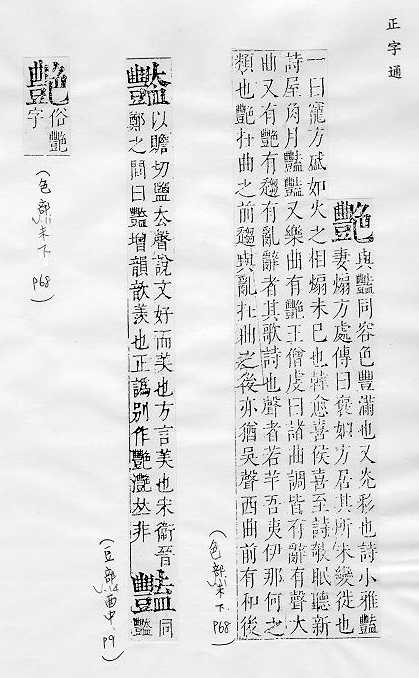 正字通
艷
與豔同容色豐滿也又光彩也詩小雅豔
妻煽方處傳曰褒姒方居其所未變徙也
一曰寵方盛如火之相煽未已也韓愈喜侯喜至詩欹眠聽新
詩屋角月豔豔又樂曲有豔王僧虔曰諸曲調皆有辭有聲大
曲又有艷有趨有亂辭者其歌詩也聲者若羊吾夷伊那何之
類也艷在曲之前趨與亂在曲之後亦猶吳聲西曲前有和後
(色部末下 P68)
豔
以贍切鹽去聲說文好而美也方言美也宋衛晉
鄭之閒曰豔增韻歆羨也正譌別作艷灔𠀤非
同
豔
(豆部酉中 P9)
艶
俗艷
字
(色部末下 P68)